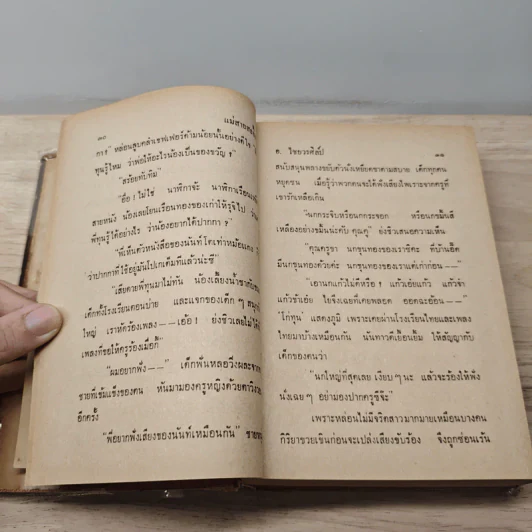 ๑๐
แม่สายสะอื้
กา ?" หล่อนลูบคลำเชฟเฟอร์ด้ามน้อยนั้นอย่างดีใจ
ทุนรู้ไหม ว่าพ่อให้อะไรน้องเป็นของขวัญ ?
"สร้อยทับทิม"
"อื๋อ ! ไม่ใช่ นาฬิกาจ้ะ นาฬิกาเรือน
สายหนัง น้องเลยโยนเรือนทองของเก่าให้รุจีไป
พี่ทุนรู้ได้อย่างไร ว่าน้องอยากได้ปากกา ?"
"พี่เห็นตัวหนังสือของนันท์โตเท่าหม้อแกง
"ว่าปากกาที่ใช้อยู่มันไปเกเต็มทีแล้วน่ะซี"
"เสียดายพี่ทุนมาไม่ทัน น้องเลี้ยงน้ำชา
เด็กทั้งโรงเรียนตอนบ่าย และแจกของเด็ก ๆ สนุก
ใหญ่ เราหัดร้องเพลง——เอ้อ ! ยังชีวเลยไม่ได้
เพลงที่ขอให้ครูร้องเมื่อกี้
"ผมอยากฟัง——" เด็กพ้นหลอวิ่งผละจาก
ชายที่เข้มแข็งของคน หันมามองครูหญิงด้วยตาวิงวอน
อีกครั้ง
"พี่อยากฟังเสียงของนันท์เหมือนกัน" ชาย
ก. ไชยวรศิลป์
๑๑
สนับสนุนพลางขยับตัวนั่งเหยียดขาตามสบาย เด็กทุกคน
หยุดซน เมื่อรู้ว่าพวกตนจะได้ฟังเสียงไพเราะจากครูที่
เขารักเหลือเกิน
"นกกระจิบหรือนกกระจอก หรือนกขมิ้นสี
เหลืองอย่างขมิ้นน่ะคับ คุณคู" ยังชีวเสนอความเห็น
"คุณครูขา นกขุนทองของเราซีคะ ที่บ้านอี๊ด
มีนกขุนทองด้วยค่ะ นกขุนทองของเราแต่เก่าก่อน——"
"เอานกแก้วไม่ดีหรือ ! แก้วเอ๋ยแก้ว แก้วจ๋า
แก้วขำเอ๋ย โยงั่งเฉยที่เคยพลอด ออดฉะอ้อน——"
'ไก่ทุน' แสดงภูมิ เพราะเคยผ่านโรงเรียนไทยและเพลง
ไทยมาบ้างเหมือนกัน นันทาวดีเยื้อนยิ้ม ให้สัญญากับ
เด็กของตนว่า
"นกใหญ่ที่สุดเลย เงียบ ๆ นะ แล้วจะร้องให้ฟัง
นั่งเฉย ๆ อย่ามองปากครูซีจ๊ะ"
เพราะหล่อนไม่มีจริตสาวมากมายเหมือนบางคน
กิริยาขวยเขินก่อนจะเปล่งเสียงขับร้อง จึงถูกซ่อนเร้น